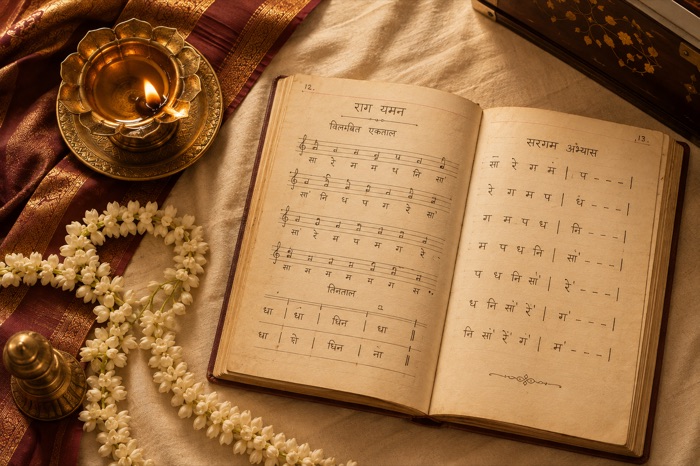 12.
राग यमन
विलमबित एकताल
सा रे म म प नि सा'
सा' नि ध प ग रे सा'
सा रे म प म ग रे
सा ग म म प ग स ..
तिनताल
2
धा | धां | धिन | धा
धा | शे | धिन | ना
13.
सरगम अभ्यास
सां रे ग मं | प - - - - |
रे ग म प | धं - - - - |
ग म प ध | नि - - - - |
म प ध नि | सां' - - - |
प ध नि सां' | रें' - - - |
ध नि सां' रें' | ग' - - - |
नि सां' रें' ग' | म' - - - |